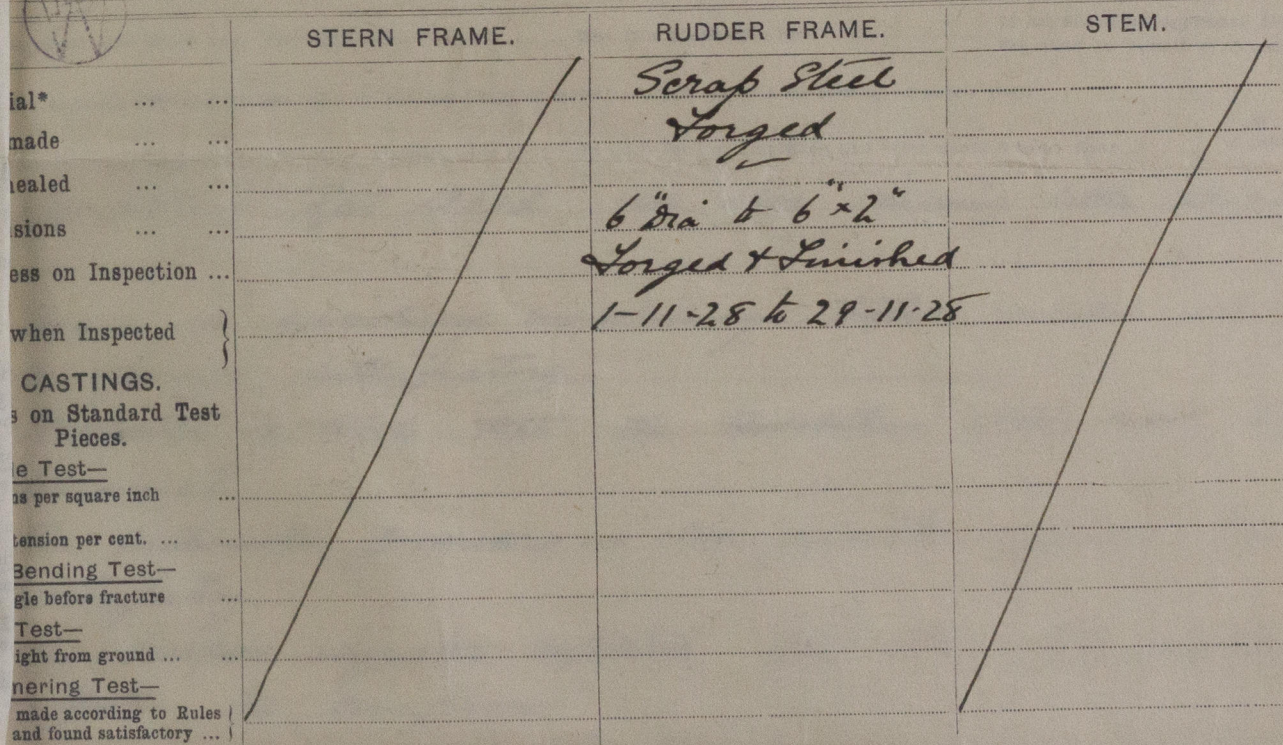 STERN FRAME. RUDDER FRAME. STEM.
ial* ... ... Scrap Steel
made ... ... Forged
nealed ... ... ✓
sions ... ... 6" Dia to 6" × 2"
ess on Inspection ... Forged & Finished
when Inspected } 1-11-28 to 29-11-28
CASTINGS.
s on Standard Test
Pieces.
e Test—
ns per square inch ...
tension per cent. ... ...
Bending Test—
gle before fracture ...
Test—
ight from ground ... ...
mering Test—
made according to Rules }
and found satisfactory ...